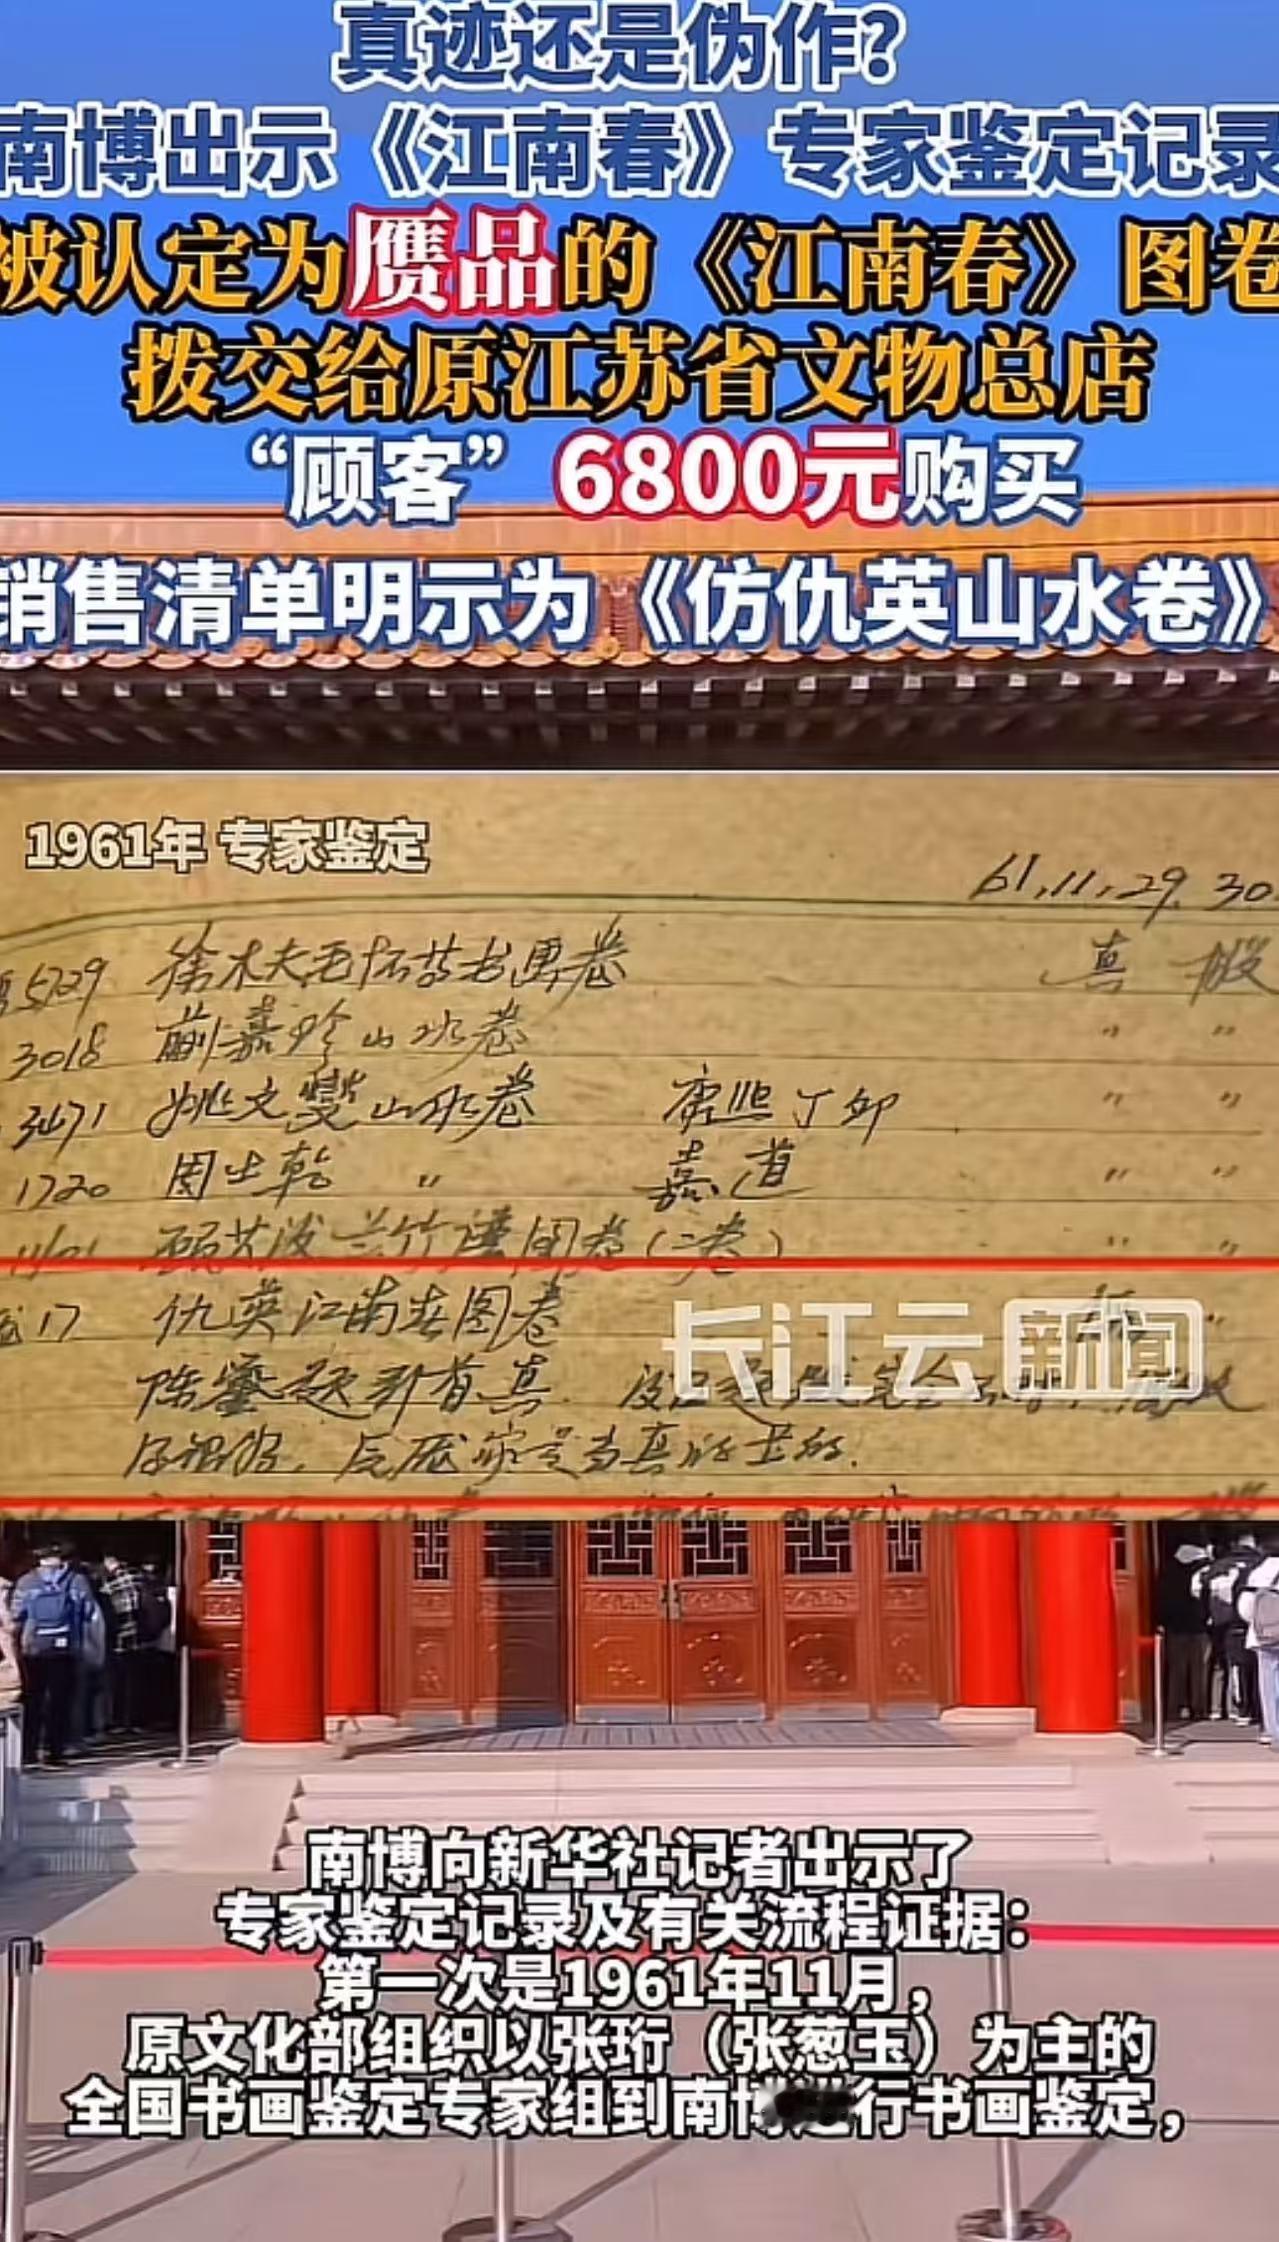 真迹还是伪作?
南博出示《江南春》专家鉴定记录
被认定为赝品的《江南春》图卷
拨交给原江苏省文物总店
“顾客”6800元购买
销售清单明示为《仿仇英山水卷》
1961年 专家鉴定
61.11.29.30.
5729 徐木夫毛怀芳书画卷 真 假
3018 蒯嘉珍山水卷 〃 〃
3471 姚文燮山水卷 康熙丁卯 〃 〃
1720 周士乾 〃 嘉道 〃 〃
卷(二卷) 〃 〃
17 仇英江南春图卷
陈鎏题引首真.
长江云新闻
南博向新华社记者出示了
专家鉴定记录及有关流程证据:
第一次是1961年11月,
原文化部组织以张珩(张葱玉)为主的
全国书画鉴定专家组到南博进行书画鉴定,